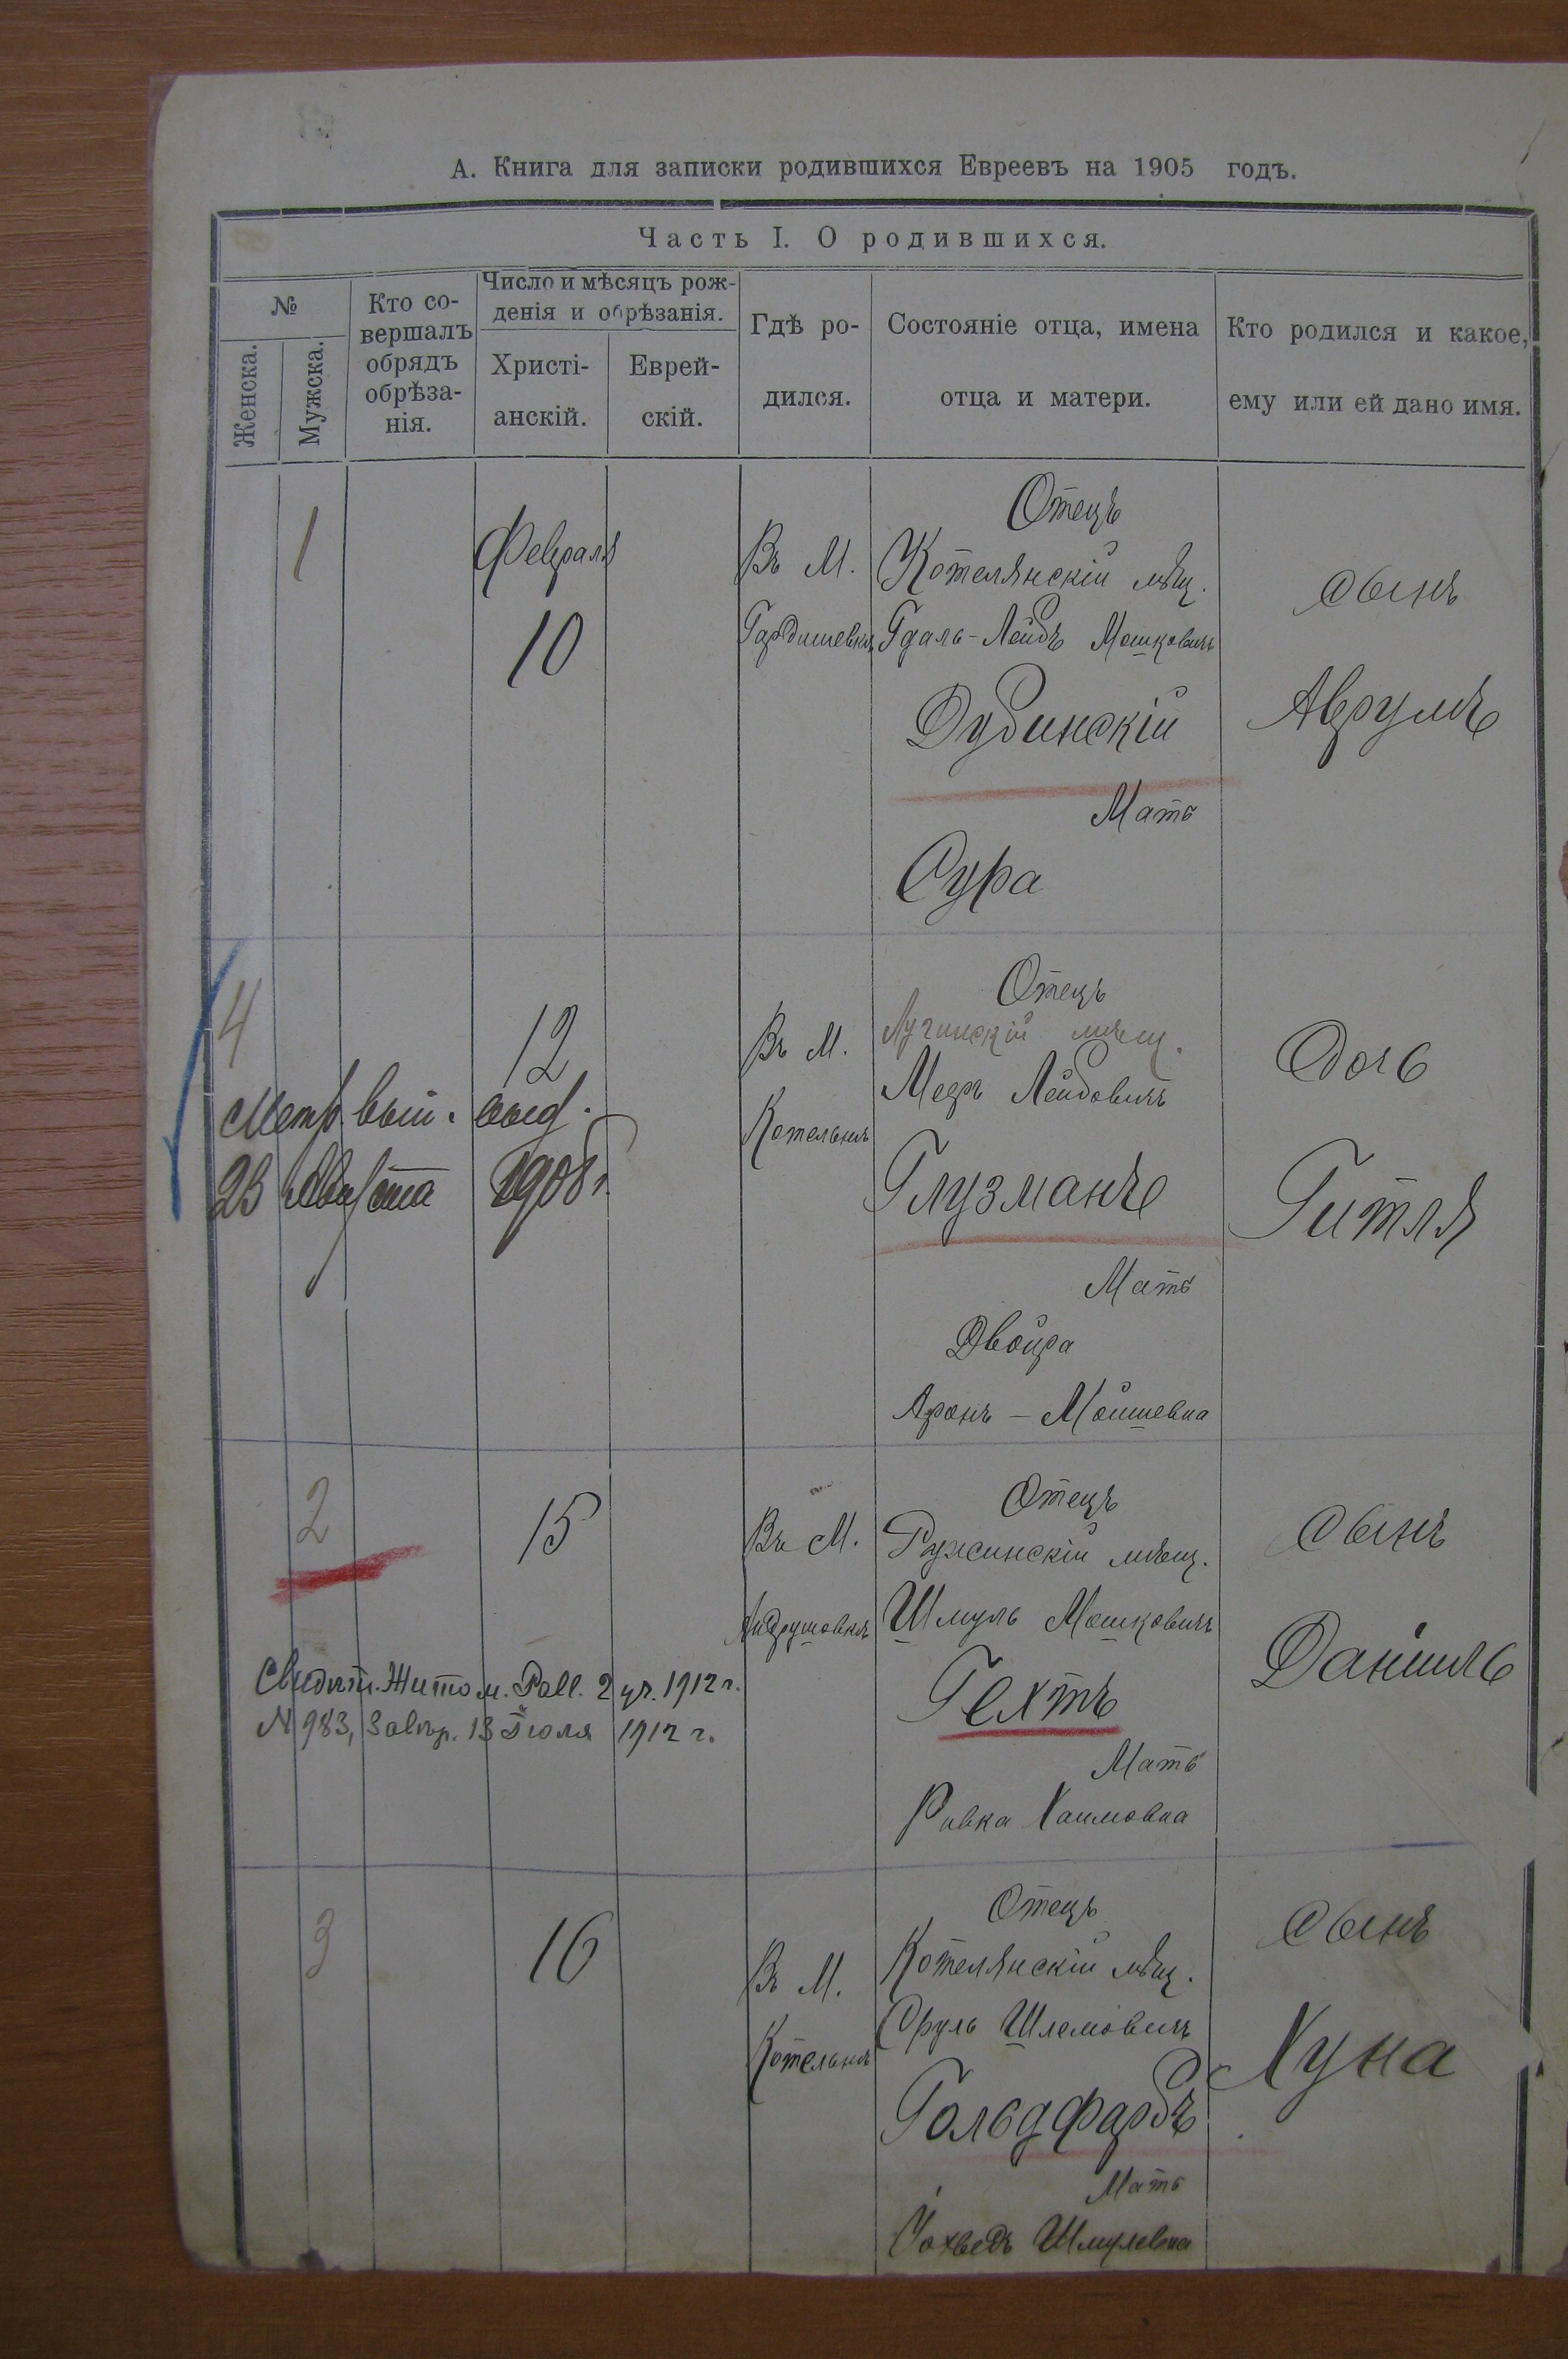 А. Книга для записки родившихся Евреевъ на 1905 годъ.
Часть I. О родившихся.
№
Женска.
Мужска.
Кто со-
вершалъ
обрядъ
обрѣза-
нія.
Число и мѣсяцъ рож-
денія и обрѣзанія.
Христі-
анскій.
Еврей-
скій.
Гдѣ ро-
дился.
Состояніе отца, имена
отца и матери.
Кто родился и какое,
ему или ей дано имя.
1
Февраля
10
Въ М.
Отецъ
Котелянскій мѣщ.
Гдаль-Лейбъ Мошковичъ
Дубинскій
Мать
Сура
сынъ
Аврумъ
4
12
Метр. вып. выд.
23 Августа 1908 г.
Въ М.
Котельнѣ
Отецъ
Лучинскій мѣщ.
Мееръ Лейбовичъ
Глузманъ
Мать
Двойра
Аронъ-Мошевна
Дочь
Гитля
2
15
Свидѣт. Житом. Равв. 2 уч. 1912 г.
№ 983, завѣр. 13 Іюля 1912 г.
Въ М.
Андрушовкѣ
Отецъ
Ружинскій мѣщ.
Шмуль Мошковичъ
Гехтъ
Мать
Ривка Хаимовна
сынъ
Даніилъ
3
16
Въ М.
Котельнѣ
Отецъ
Котелянскій мѣщ.
Сруль Шлемовичъ
Гольдфарбъ
Мать
Іохведъ Шмулевна
сынъ
Хуна